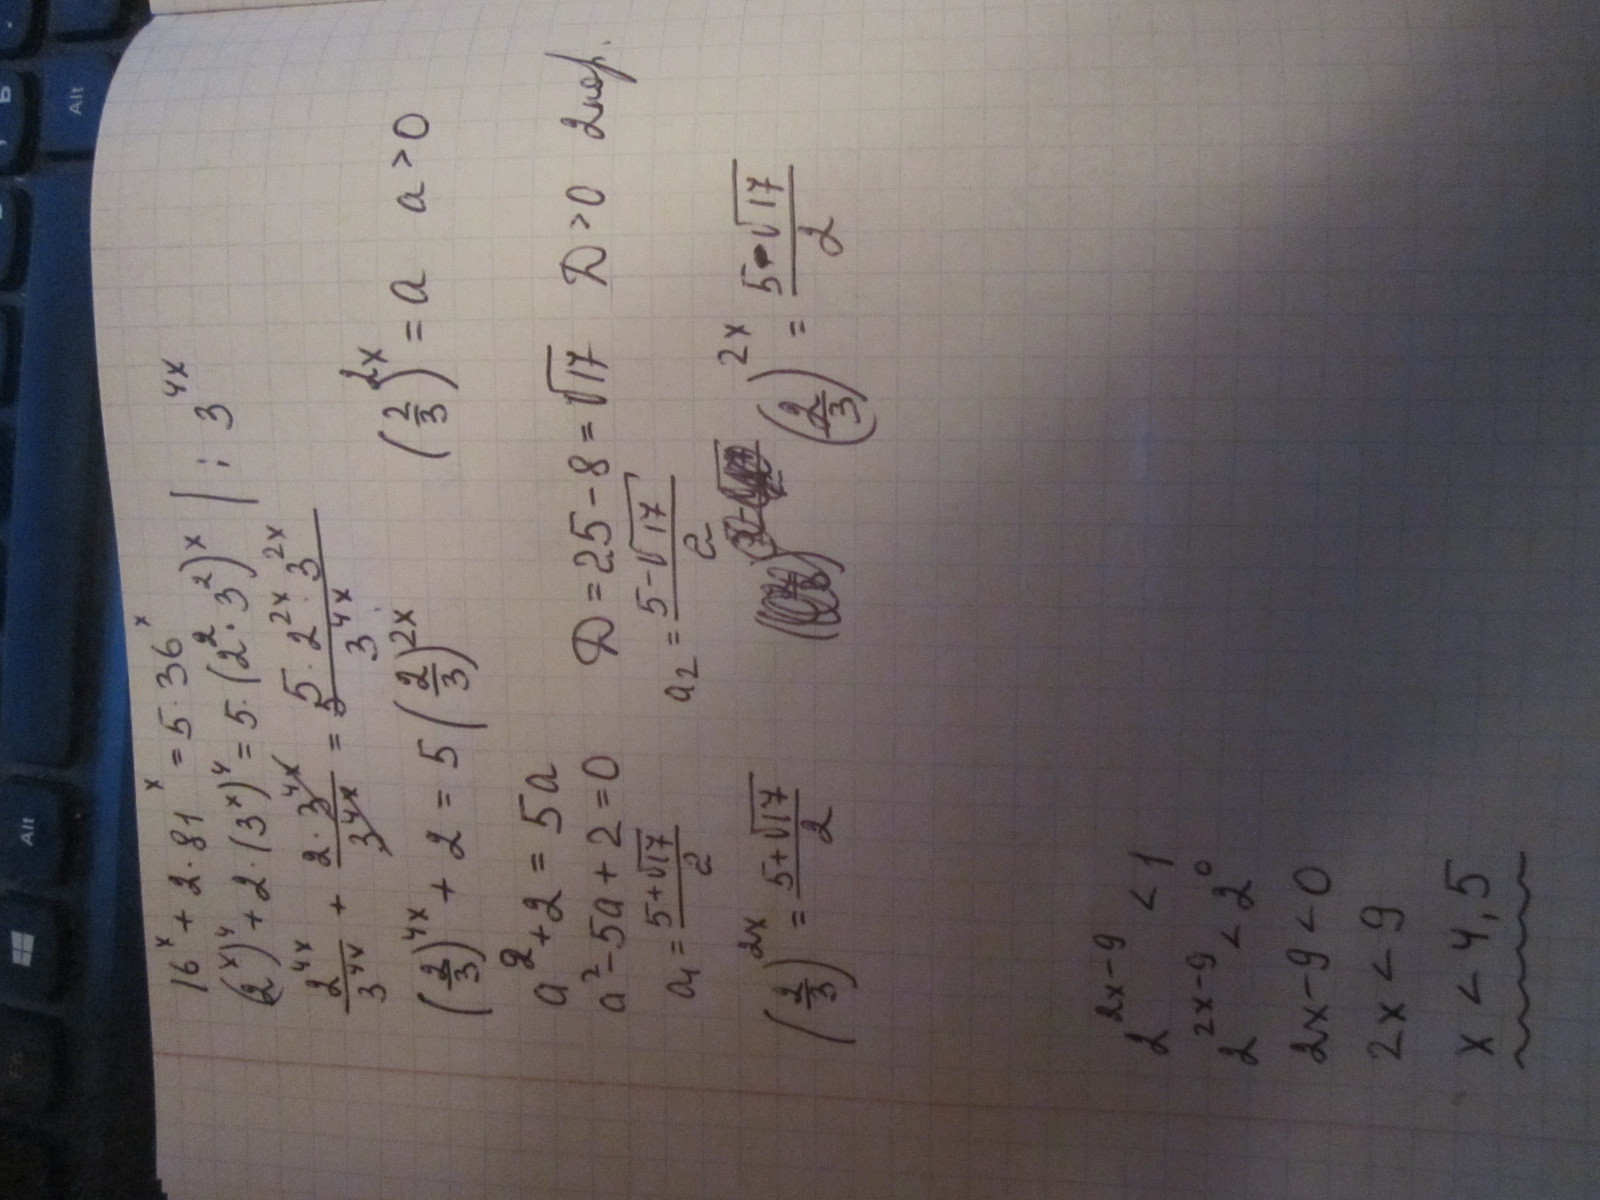 16^x + 2·81^x = 5·36^x
(2^x)^4 + 2·(3^x)^4 = 5·(2^2·3^2)^x | : 3^4x
2^4x/3^4x + 2·3^4x/3^4x = 5·2^2x·3^2x/3^4x
(2/3)^4x + 2 = 5(2/3)^2x (2/3)^2x = a a>0
a^2+2 = 5a
a^2-5a+2=0 D=25-8=√17 D>0 2кор.
a1 = 5+√17/2 a2 = 5-√17/2
(2/3)^2x = 5+√17/2 (2/3)^2x = 5-√17/2
2^2x-9 < 1
2^2x-9 < 2^0
2x-9<0
2x<9
x<4,5
Alt
Alt
Fn